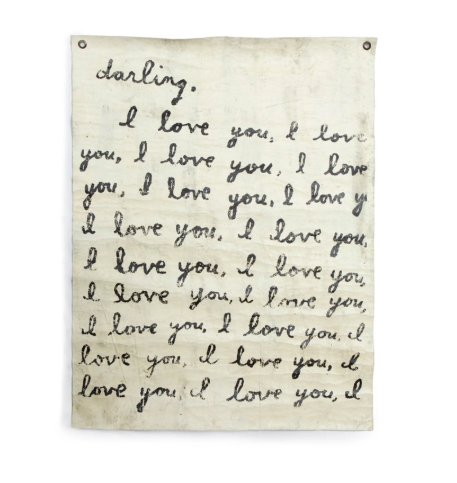 darling,
I love you, I love
you, I love you, I love
you, I love you, I love y
I love you, I love you,
I love you, I love you,
I love you, I love you,
I love you, I love you, I
love you, I love you, I
love you, I love you, I